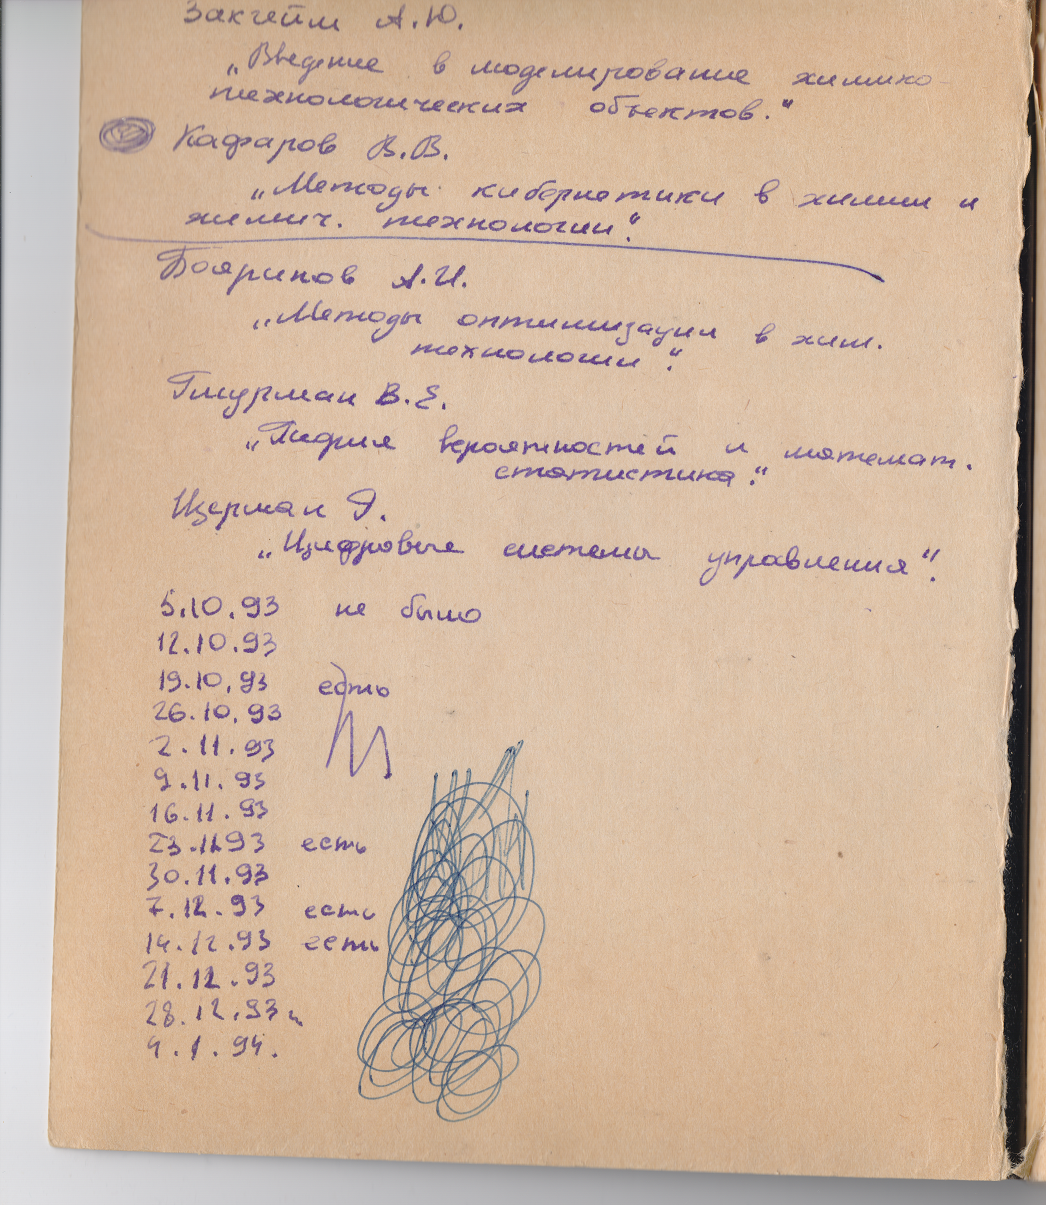 Закгейм А.Ю.
„Введение в моделирование химико-
технологических объектов."
Кафаров В.В.
„Методы кибернетики в химии и
химич. технологии".
Бояринов А.И.
„Методы оптимизации в хим.
технологии".
Гмурман В.Е.
„Теория вероятностей и математ.
статистика".
Изерман Р.
„Цифровые системы управления".
5.10.93 не было
12.10.93
19.10.93 есть
26.10.93
2.11.93
9.11.93
16.11.93
23.11.93 есть
30.11.93
7.12.93 есть
14.12.93 есть
21.12.93
28.12.93
4.1.94.